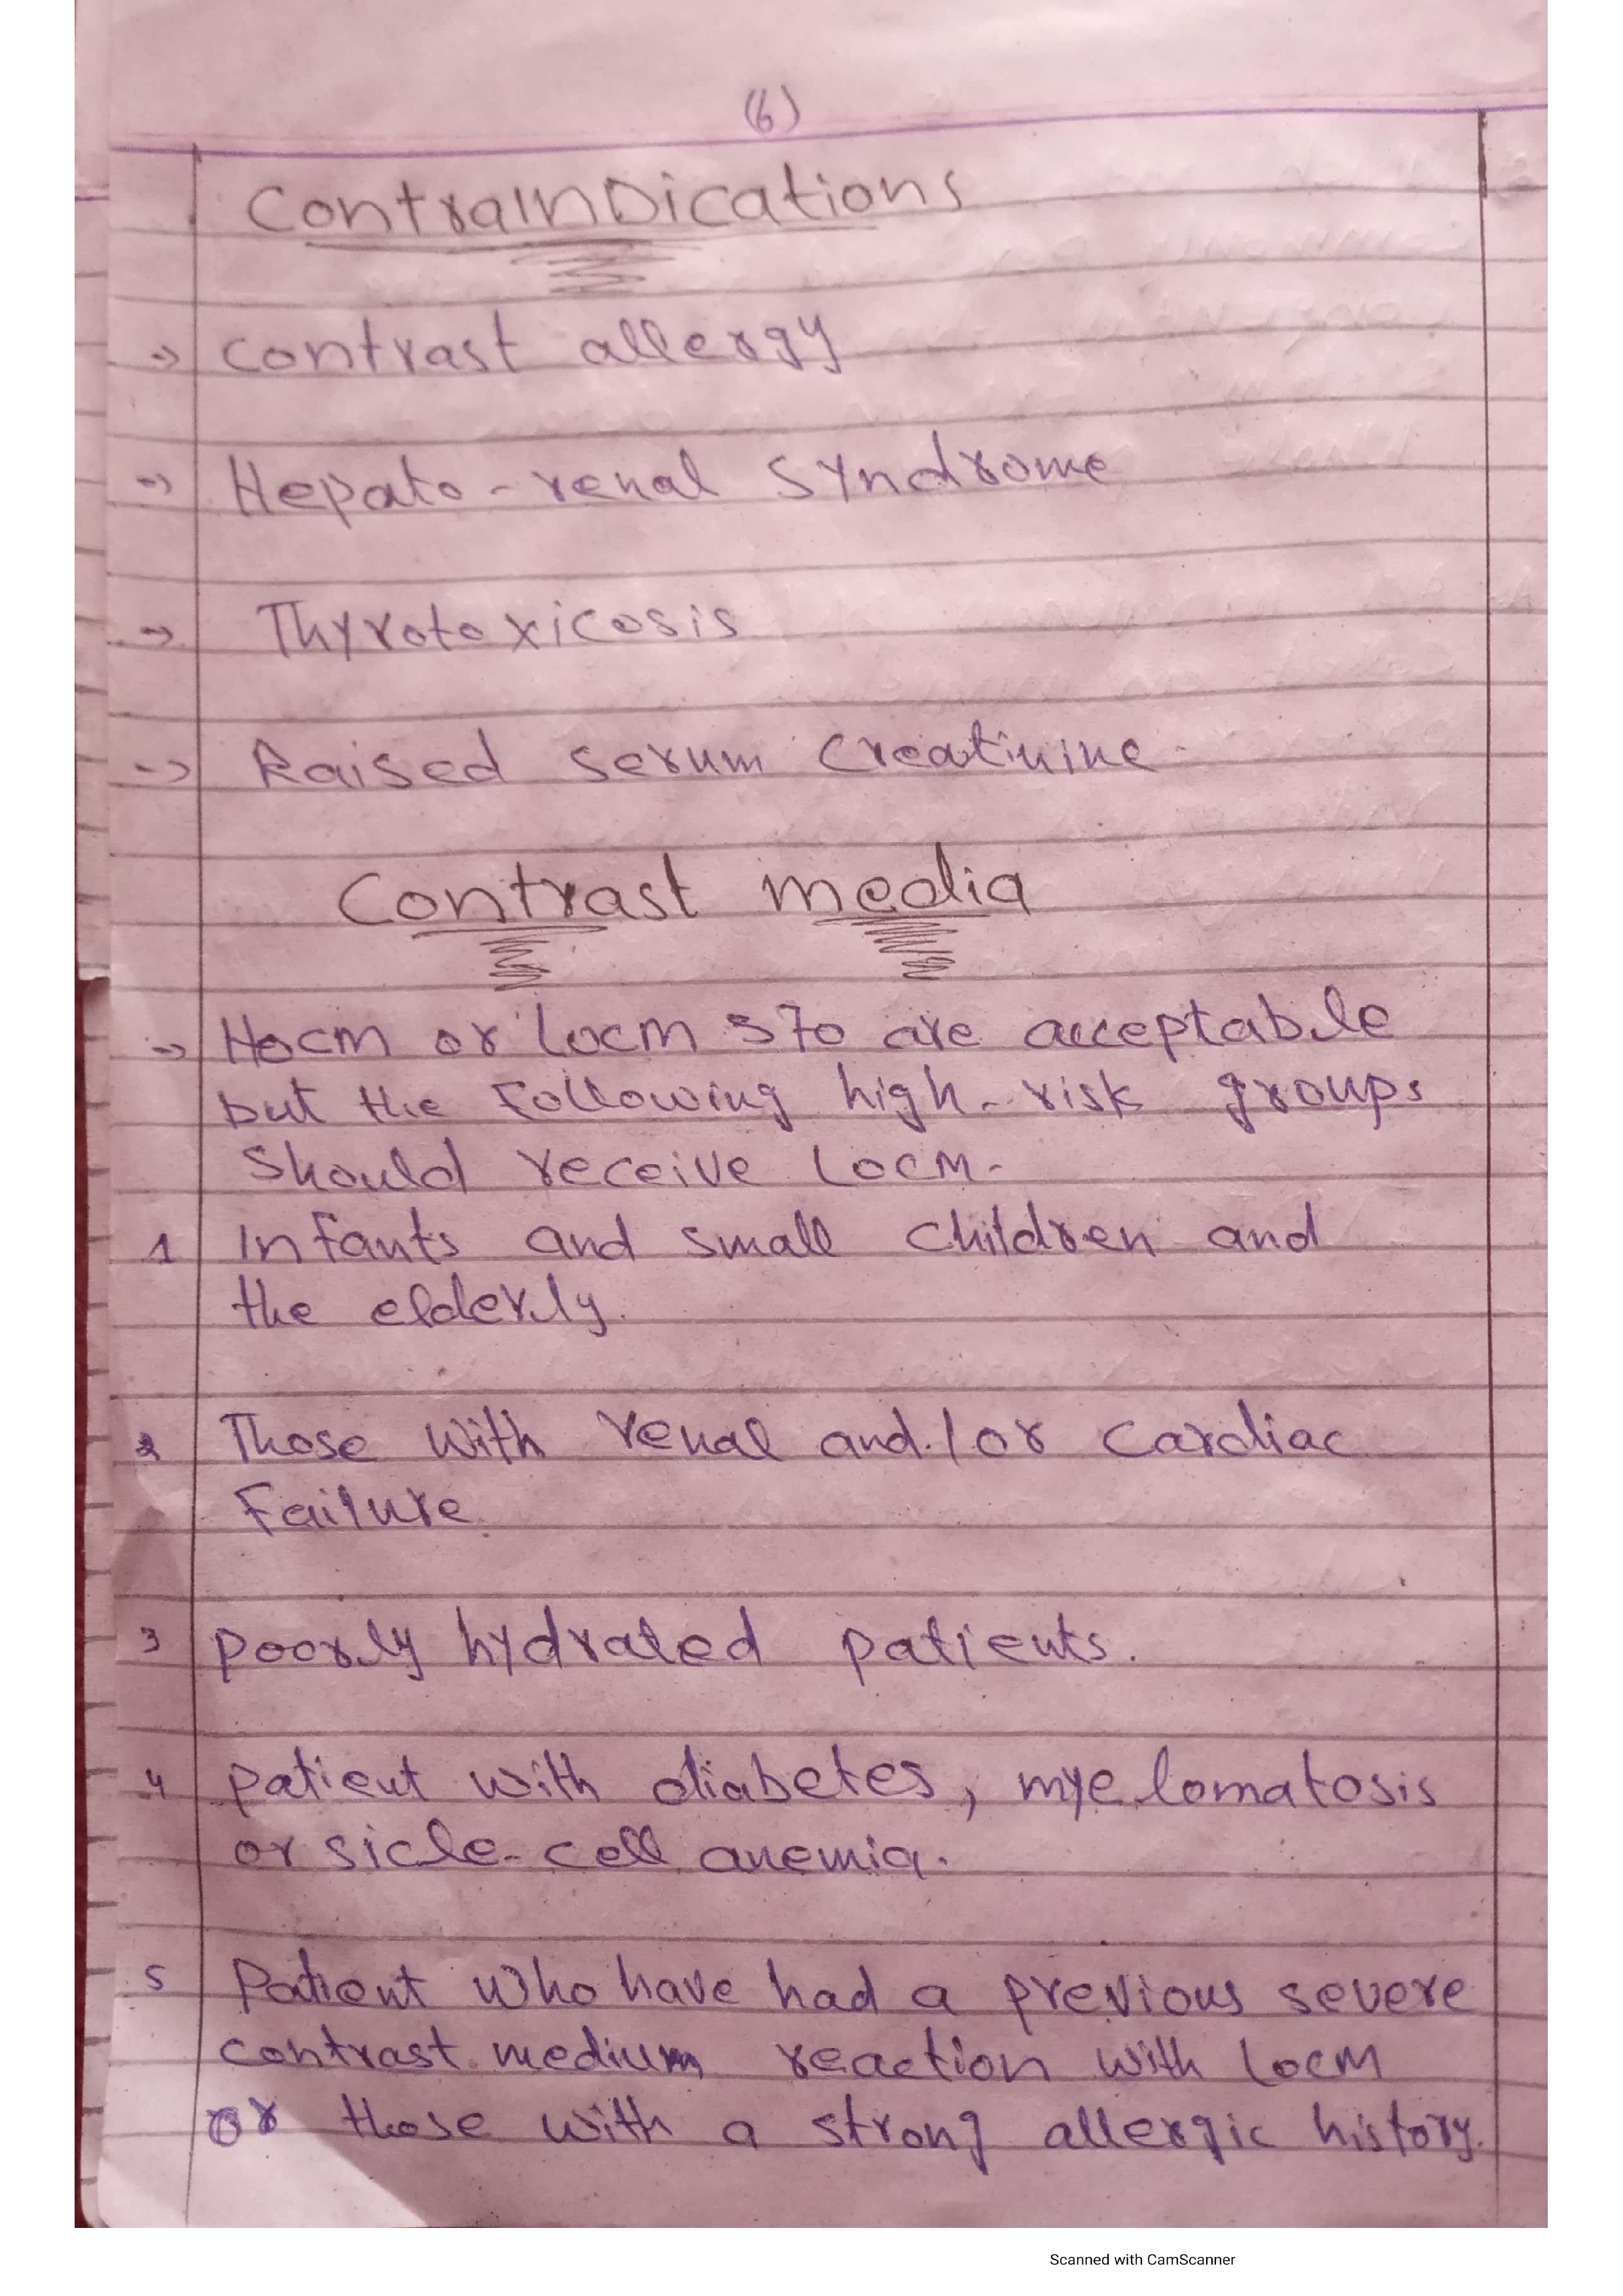 (6)
ContraInDications
-> contrast allergy
-> Hepato-renal Syndrome
-> Thyrotoxicosis
-> Raised serum Creatinine.
Contrast media
-> Hocm or Locm 370 are acceptable
but the Following high-risk groups
Should receive Locm.
1 Infants and small children and
the elderly.
2 Those with renal and/or Cardiac
Failure.
3 poorly hydrated patients.
4 patient with diabetes, myelomatosis
or sicle-cell anemia.
5 Patient who have had a previous severe
contrast medium reaction with Locm
or those with a strong allergic history.
Scanned with CamScanner